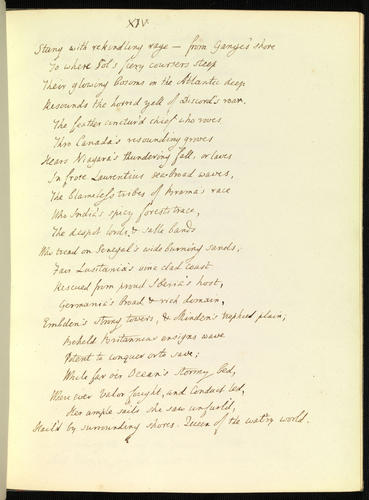 XIV.
Stung with rekindling rage — from Ganges's shore
To where Sol's fiery coursers steep
Their glowing bosoms in the Atlantic deep
Resounds the horrid yell of Discord's roar.
The feather cinctur'd chief who roves
Thro Canada's resounding groves
Hears Niagara's thundering fall, or laves
In frore Laurentius sea-broad waves,
The blameless tribes of Brama's race
Who India's spicy forests trace,
The despot lords, & sable bands
Who tread on Senegal's wide burning sands;
Fair Lusitania's vine clad coast
Rescued from proud Iberia's host,
Germania's broad & rich domain,
Embden's strong towers, & Minden's trophied plain;
Beheld Britannia's ensigns wave
Potent to conquer or to save;
While far oer Ocean's stormy bed,
Where ever Valor fought, and Conduct led,
Her ample sails she saw unfurl'd,
Hail'd by surrounding shores. Queen of the wat'ry world.